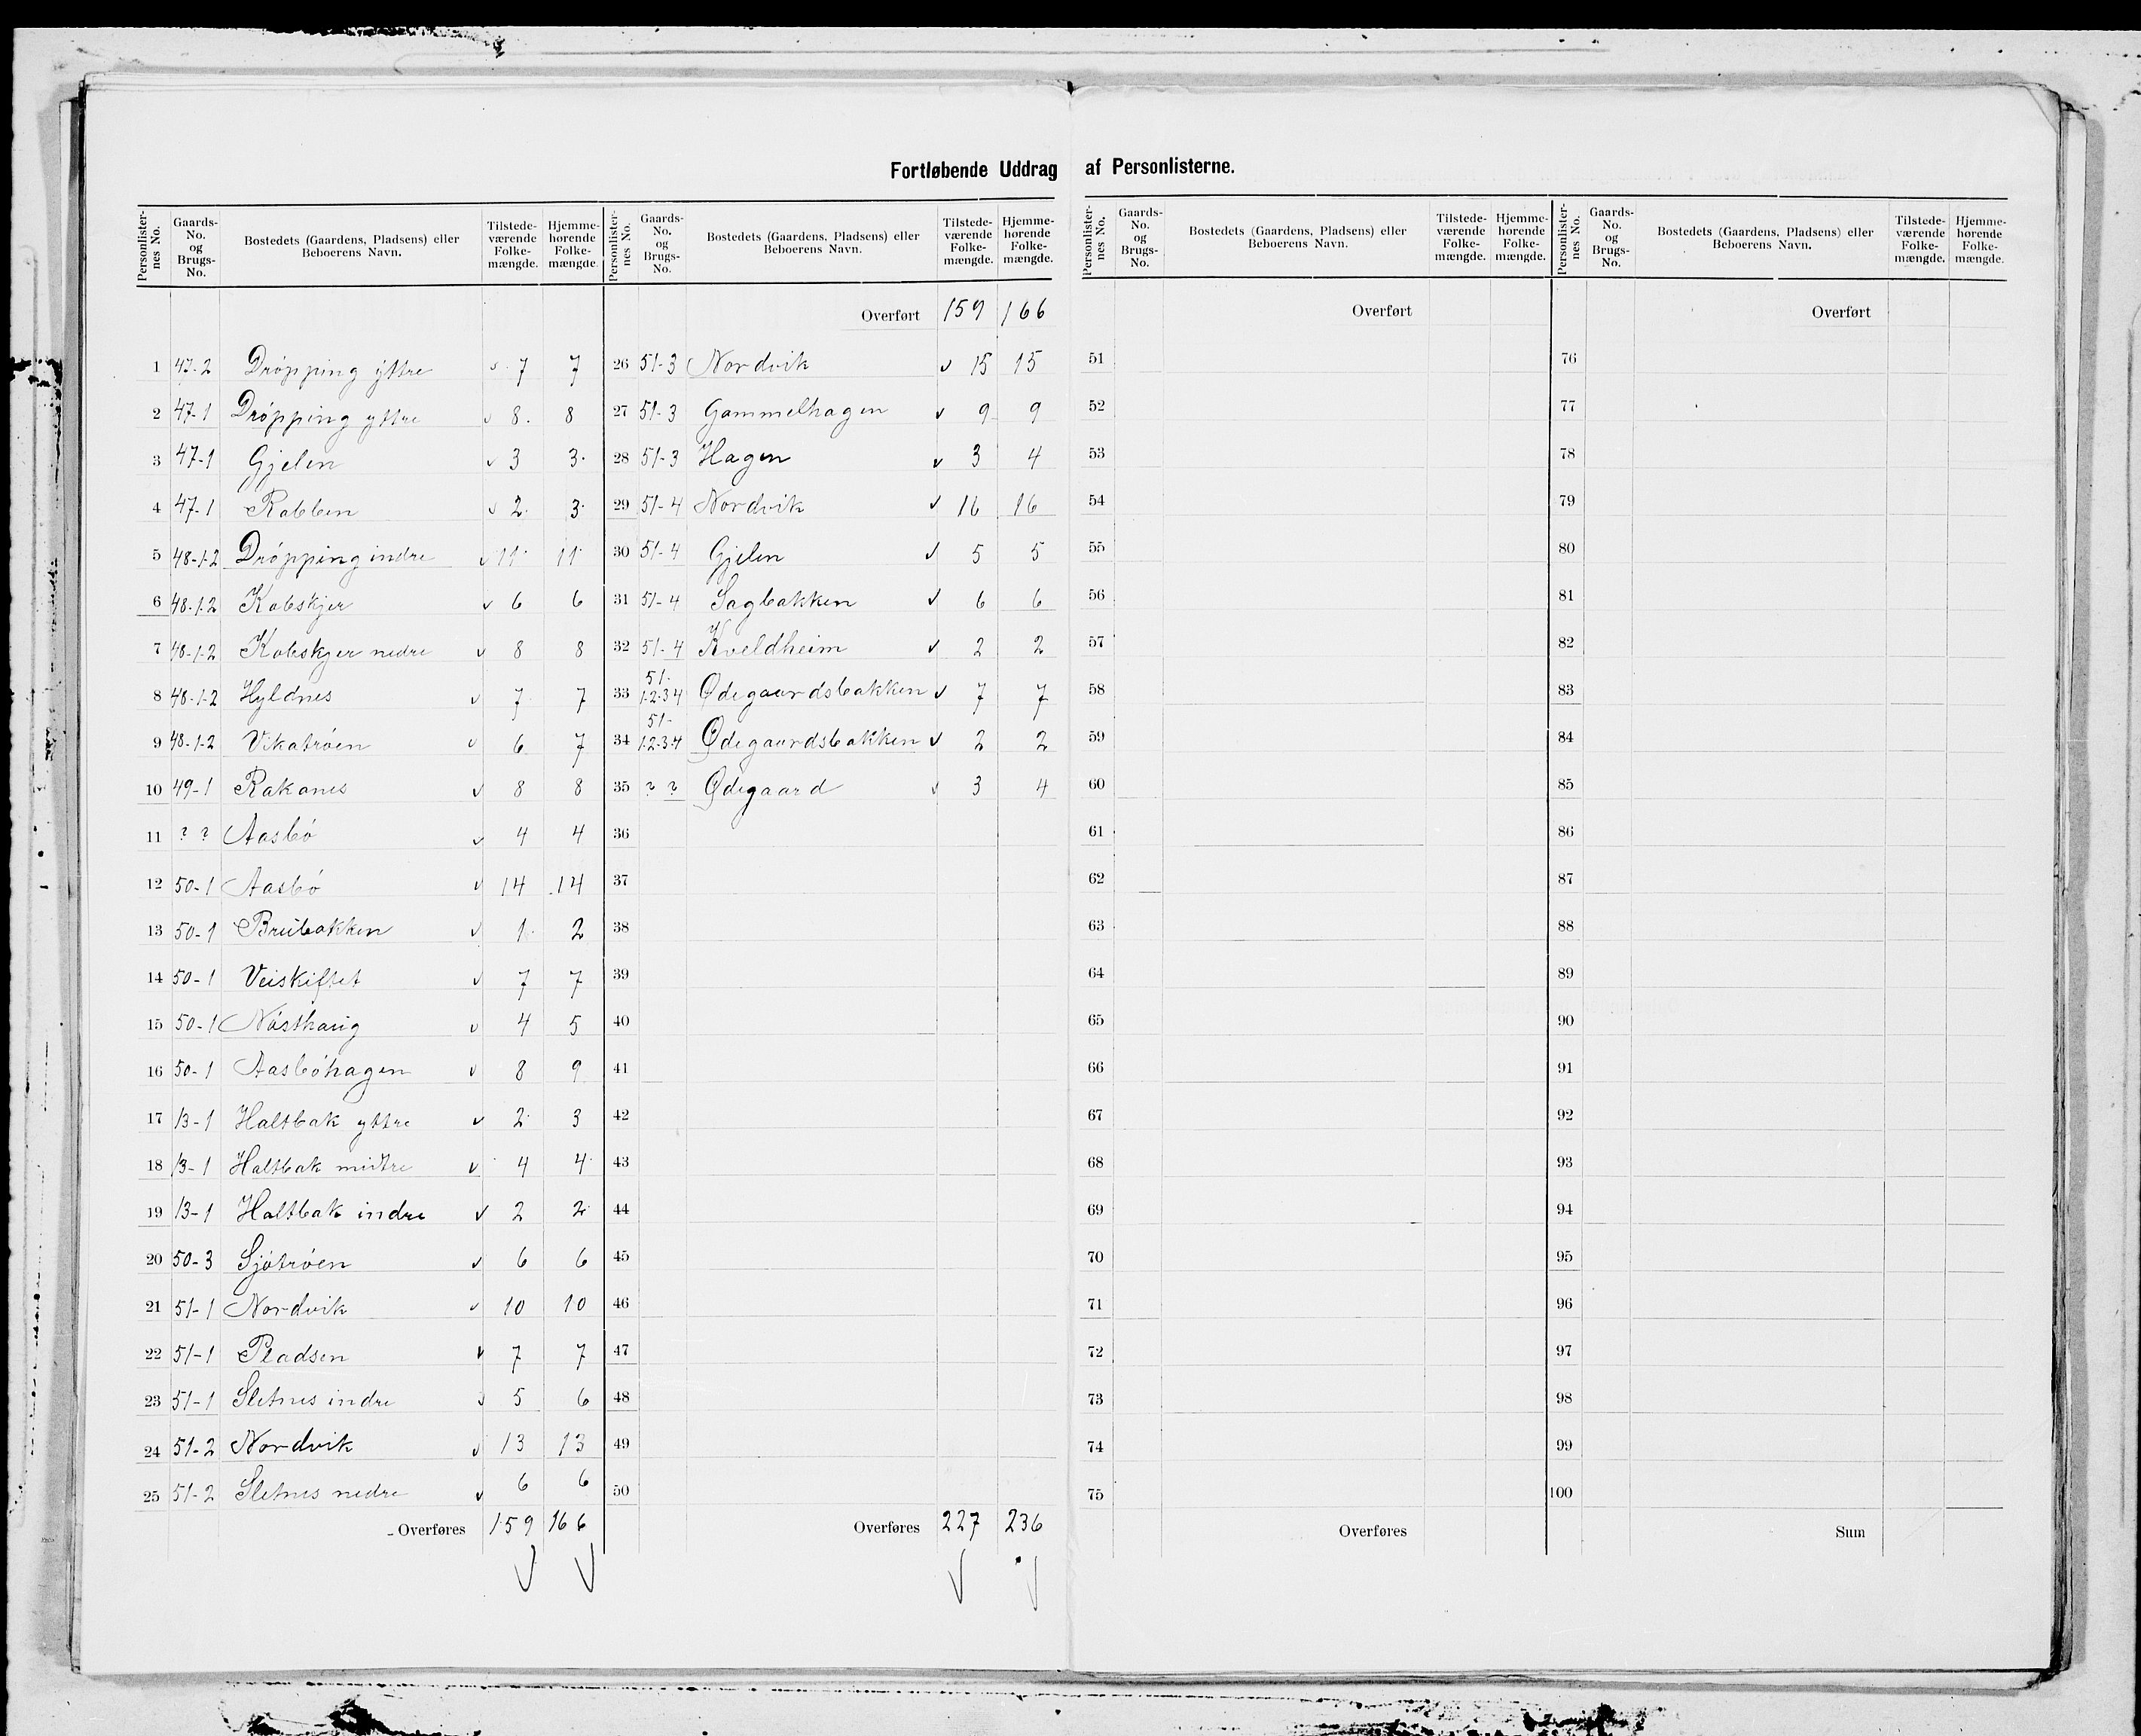 Fortløbende Uddrag af Personlisterne.
Personlister-nes No. Gaards-No. og Brugs-No. Bostedets (Gaardens, Pladsens) eller Beboerens Navn. Tilstede-værende Folke-mængde. Hjemme-hørende Folke-mængde.
1 47-2 Drøpping yttre 7 7
2 47-1 Drøpping yttre 8 8
3 47-1 Gjelen 3 3
4 47-1 Rabben 2 3
5 48-1-2 Drøpping indre 11 11
6 48-1-2 Kobskjer 6 6
7 48-1-2 Kobskjer nedre 8 8
8 48-1-2 Hyldnes 7 7
9 48-1-2 Vikatrøen 6 7
10 49-1 Rakanes 8 8
11 ? ? Aasbø 4 4
12 50-1 Aasbø 14 14
13 50-1 Brubakken 1 2
14 50-1 Veiskiftet 7 7
15 50-1 Nøsthaug 4 5
16 50-1 Aasbøhagen 8 9
17 13-1 Haltbak yttre 2 3
18 13-1 Haltbak midtre 4 4
19 13-1 Haltbak indre 2 2
20 50-3 Sjøtrøen 6 6
21 51-1 Nordvik 10 10
22 51-1 Pladsen 7 7
23 51-1 Sletnes indre 5 6
24 51-2 Nordvik 13 13
25 51-2 Sletnes nedre 6 6
Overføres 159 166
Personlister-nes No. Gaards-No. og Brugs-No. Bostedets (Gaardens, Pladsens) eller Beboerens Navn. Tilstede-værende Folke-mængde. Hjemme-hørende Folke-mængde.
Overført 159 166
26 51-3 Nordvik 15 15
27 51-3 Gammelhagen 9 9
28 51-3 Hagen 3 4
29 51-4 Nordvik 16 16
30 51-4 Gjelen 5 5
31 51-4 Sagbakken 6 6
32 51-4 Kveldheim 2 2
33 51-1-2-3-4 Ødegaardsbakken 7 7
34 51-1-2-3-4 Ødegaardsbakken 2 2
35 ? ? Ødegaard 3 4
36
37
38
39
40
41
42
43
44
45
46
47
48
49
50
Overføres 227 236
Personlister-nes No. Gaards-No. og Brugs-No. Bostedets (Gaardens, Pladsens) eller Beboerens Navn. Tilstede-værende Folke-mængde. Hjemme-hørende Folke-mængde.
Overført
51
52
53
54
55
56
57
58
59
60
61
62
63
64
65
66
67
68
69
70
71
72
73
74
75
Overføres
Personlister-nes No. Gaards-No. og Brugs-No. Bostedets (Gaardens, Pladsens) eller Beboerens Navn. Tilstede-værende Folke-mængde. Hjemme-hørende Folke-mængde.
Overført
76
77
78
79
80
81
82
83
84
85
86
87
88
89
90
91
92
93
94
95
96
97
98
99
100
Sum